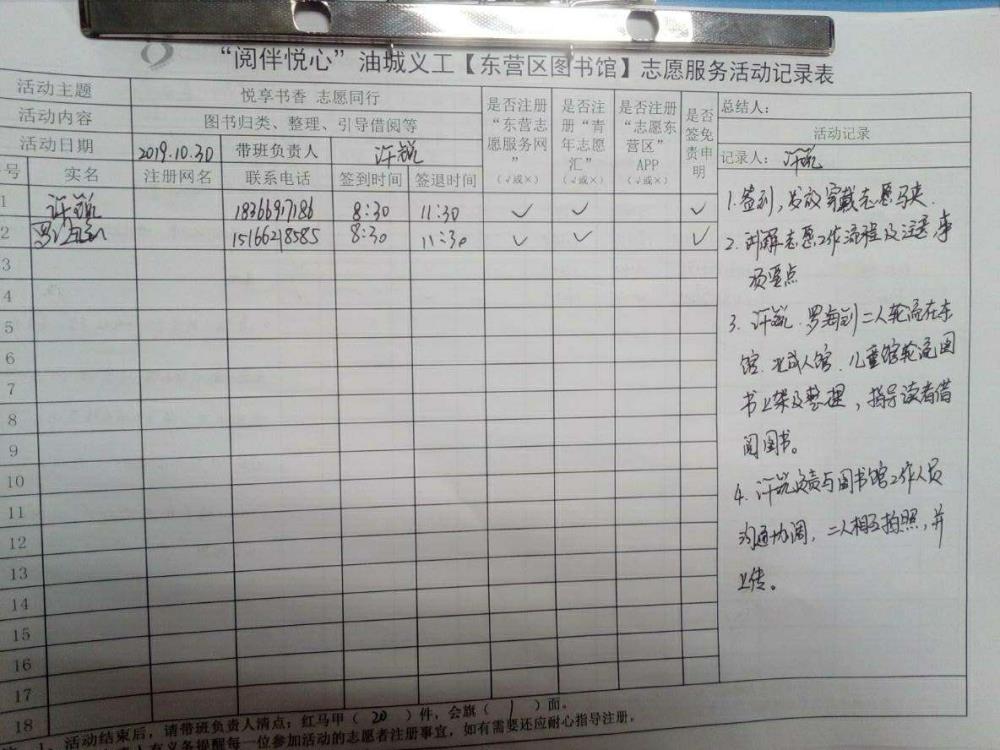 “阅伴悦心”油城义工【东营区图书馆】志愿服务活动记录表
活动主题 悦享书香 志愿同行
活动内容 图书归类、整理、引导借阅等
活动日期 2019.10.30 带班负责人 许锐
号 实名 注册网名 联系电话 签到时间 签退时间
是否注册“东营志愿服务网”（√或×）
是否注册“青年志愿汇”（√或×）
是否注册“志愿东营区”APP（√或×）
是否签免责申明
总结人：
活动记录
记录人： 许锐
1 许锐 18366917186 8:30 11:30 ✓ ✓ ✓
2 15166218585 8:30 11:30 ✓ ✓ ✓
3
4
5
6
7
8
9
10
11
12
13
14
15
16
17
18
1.签到，发放穿戴志愿马夹.
2.讲解志愿工作流程及注意事
项要点
3.许锐.罗海 二人轮流在东
馆.北成人馆.儿童馆轮流图
书上架及整理，指导读者借
阅图书。
4.许锐负责与图书馆工作人员
沟通协调，二人相互拍照，并
上传。
活动结束后，请带班负责人清点：红马甲（ 20 ）件，会旗（ 1 ）面。
人有义务提醒每一位参加活动的志愿者注册事宜，如有需要还应耐心指导注册。